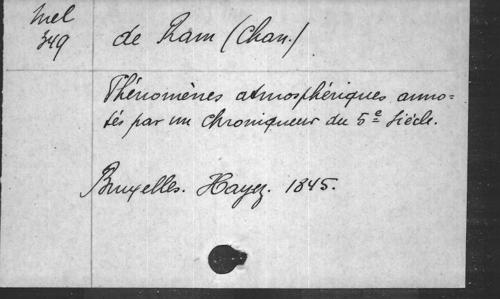 Mel
349
de Ram (Chan.)
Phénomènes atmosphériques anno-
tés par un chroniqueur du 5e Siècle.
Bruxelles. Hayez. 1845.